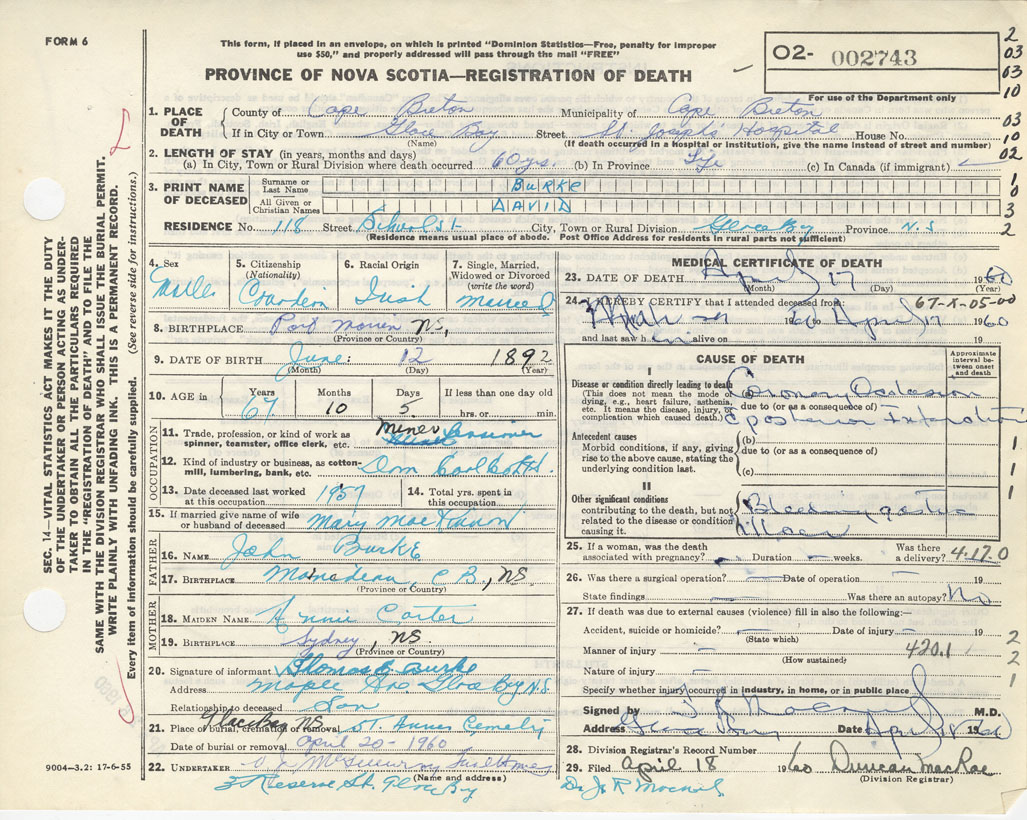 FORM 6
This form, if placed in an envelope, on which is printed "Dominion Statistics—Free, penalty for improper
use $50," and properly addressed will pass through the mail "FREE"
PROVINCE OF NOVA SCOTIA—REGISTRATION OF DEATH
02- 002743
For use of the Department only
2
03
03
10
03
10
02
1
0
3
2
1. PLACE OF DEATH
County of Cape Breton Municipality of Cape Breton
If in City or Town Glace Bay Street St. Joseph's Hospital House No.
(Name) (If death occurred in a hospital or institution, give the name instead of street and number)
2. LENGTH OF STAY (in years, months and days)
(a) In City, Town or Rural Division where death occurred 60 yrs. (b) In Province Life (c) In Canada (if immigrant)
3. PRINT NAME OF DECEASED
Surname or Last Name BURKE
All Given or Christian Names DAVID
RESIDENCE No. 118 Street School St City, Town or Rural Division Glace Bay Province N.S
(Residence means usual place of abode. Post Office Address for residents in rural parts not sufficient)
4. Sex 5. Citizenship (Nationality) 6. Racial Origin 7. Single, Married, Widowed or Divorced (write the word)
Male Irish
8. BIRTHPLACE Port Morien NS,
(Province or Country)
9. DATE OF BIRTH June: 12 1892
(Month) (Day) (Year)
10. AGE in Years Months Days If less than one day
67 10 5 hrs. or min.
OCCUPATION
11. Trade, profession, or kind of work as spinner, teamster, office clerk, etc. Miner
12. Kind of industry or business, as cotton-mill, lumbering, bank, etc. Dom Coal Co Ltd.
13. Date deceased last worked at this occupation 1957 14. Total yrs. spent in this occupation
15. If married give name of wife or husband of deceased Mary MacKinnon
FATHER
16. NAME John Burke
17. BIRTHPLACE C B, NS
(Province or Country)
MOTHER
18. MAIDEN NAME Annie Carter
19. BIRTHPLACE Sydney, NS.
(Province or Country)
20. Signature of informant Thomas Burke
Address Maple Ave Glace Bay N.S
Relationship to deceased Son
21. Place of burial, cremation or removal Glace Bay NS St. Annes Cemetery
Date of burial or removal April 20-1960
22. UNDERTAKER
(Name and address)
3 Reserve St. Glace Bay
MEDICAL CERTIFICATE OF DEATH
23. DATE OF DEATH April 17 1960
(Month) (Day) (Year)
67-X-05-00
24. I HEREBY CERTIFY that I attended deceased from:
1960 to April 17 1960
and last saw him alive on 19
CAUSE OF DEATH
Approximate interval between onset and death
I
Disease or condition directly leading to death
(This does not mean the mode of dying, e.g., heart failure, asthenia, etc. It means the disease, injury, or complication which caused death.)
(a) Coronary Occlusion
due to (or as a consequence of)
posterior Infarction
Antecedent causes
Morbid conditions, if any, giving rise to the above cause, stating the underlying condition last.
(b)
due to (or as a consequence of)
(c)
1
1
1
II
Other significant conditions
contributing to the death, but not related to the disease or condition causing it.
Bleeding gastric
Ulcer
25. If a woman, was the death associated with pregnancy? Duration weeks. Was there a delivery?
4.17.0
26. Was there a surgical operation? Date of operation 19
State findings Was there an autopsy? No
27. If death was due to external causes (violence) fill in also the following:—
Accident, suicide or homicide? Date of injury 19
(State which)
Manner of injury 420.1
(How sustained)
Nature of injury
2
2
1
Specify whether injury occurred in industry, in home, or in public place
Signed by M.D.
Address Glace Bay Date April 18 1960
28. Division Registrar's Record Number
29. Filed April 18 1960 Duncan MacRae
(Division Registrar)
SEC. 14—VITAL STATISTICS ACT MAKES IT THE DUTY
OF THE UNDERTAKER OR PERSON ACTING AS UNDER-
TAKER TO OBTAIN ALL THE PARTICULARS REQUIRED
IN THE "REGISTRATION OF DEATH" AND TO FILE THE
SAME WITH THE DIVISION REGISTRAR WHO SHALL ISSUE THE BURIAL PERMIT.
WRITE PLAINLY WITH UNFADING INK. THIS IS A PERMANENT RECORD.
Every item of information should be carefully supplied. (See reverse side for instructions.)
9004—3.2: 17-6-55